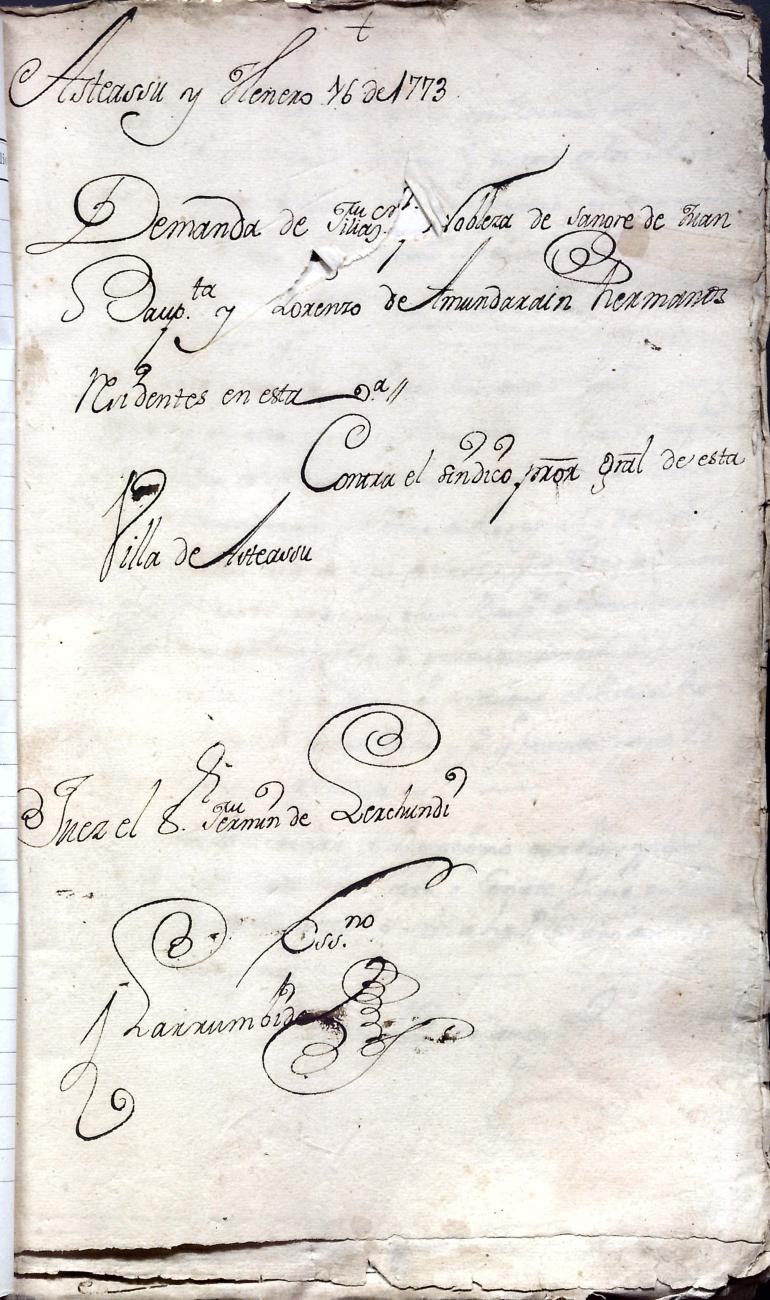 †
Asteassu y Henero 16 de 1773
Demanda de filiaz.n Nobleza de sangre de Juan
Baup.ta y Lorenzo de Amundarain hermanos
Residentes en esta v.a //
Contra el sindico pror gral de esta
Villa de Asteassu
Juez el S.r Fermin de Lerchundi
Ess.no
Larrumbide